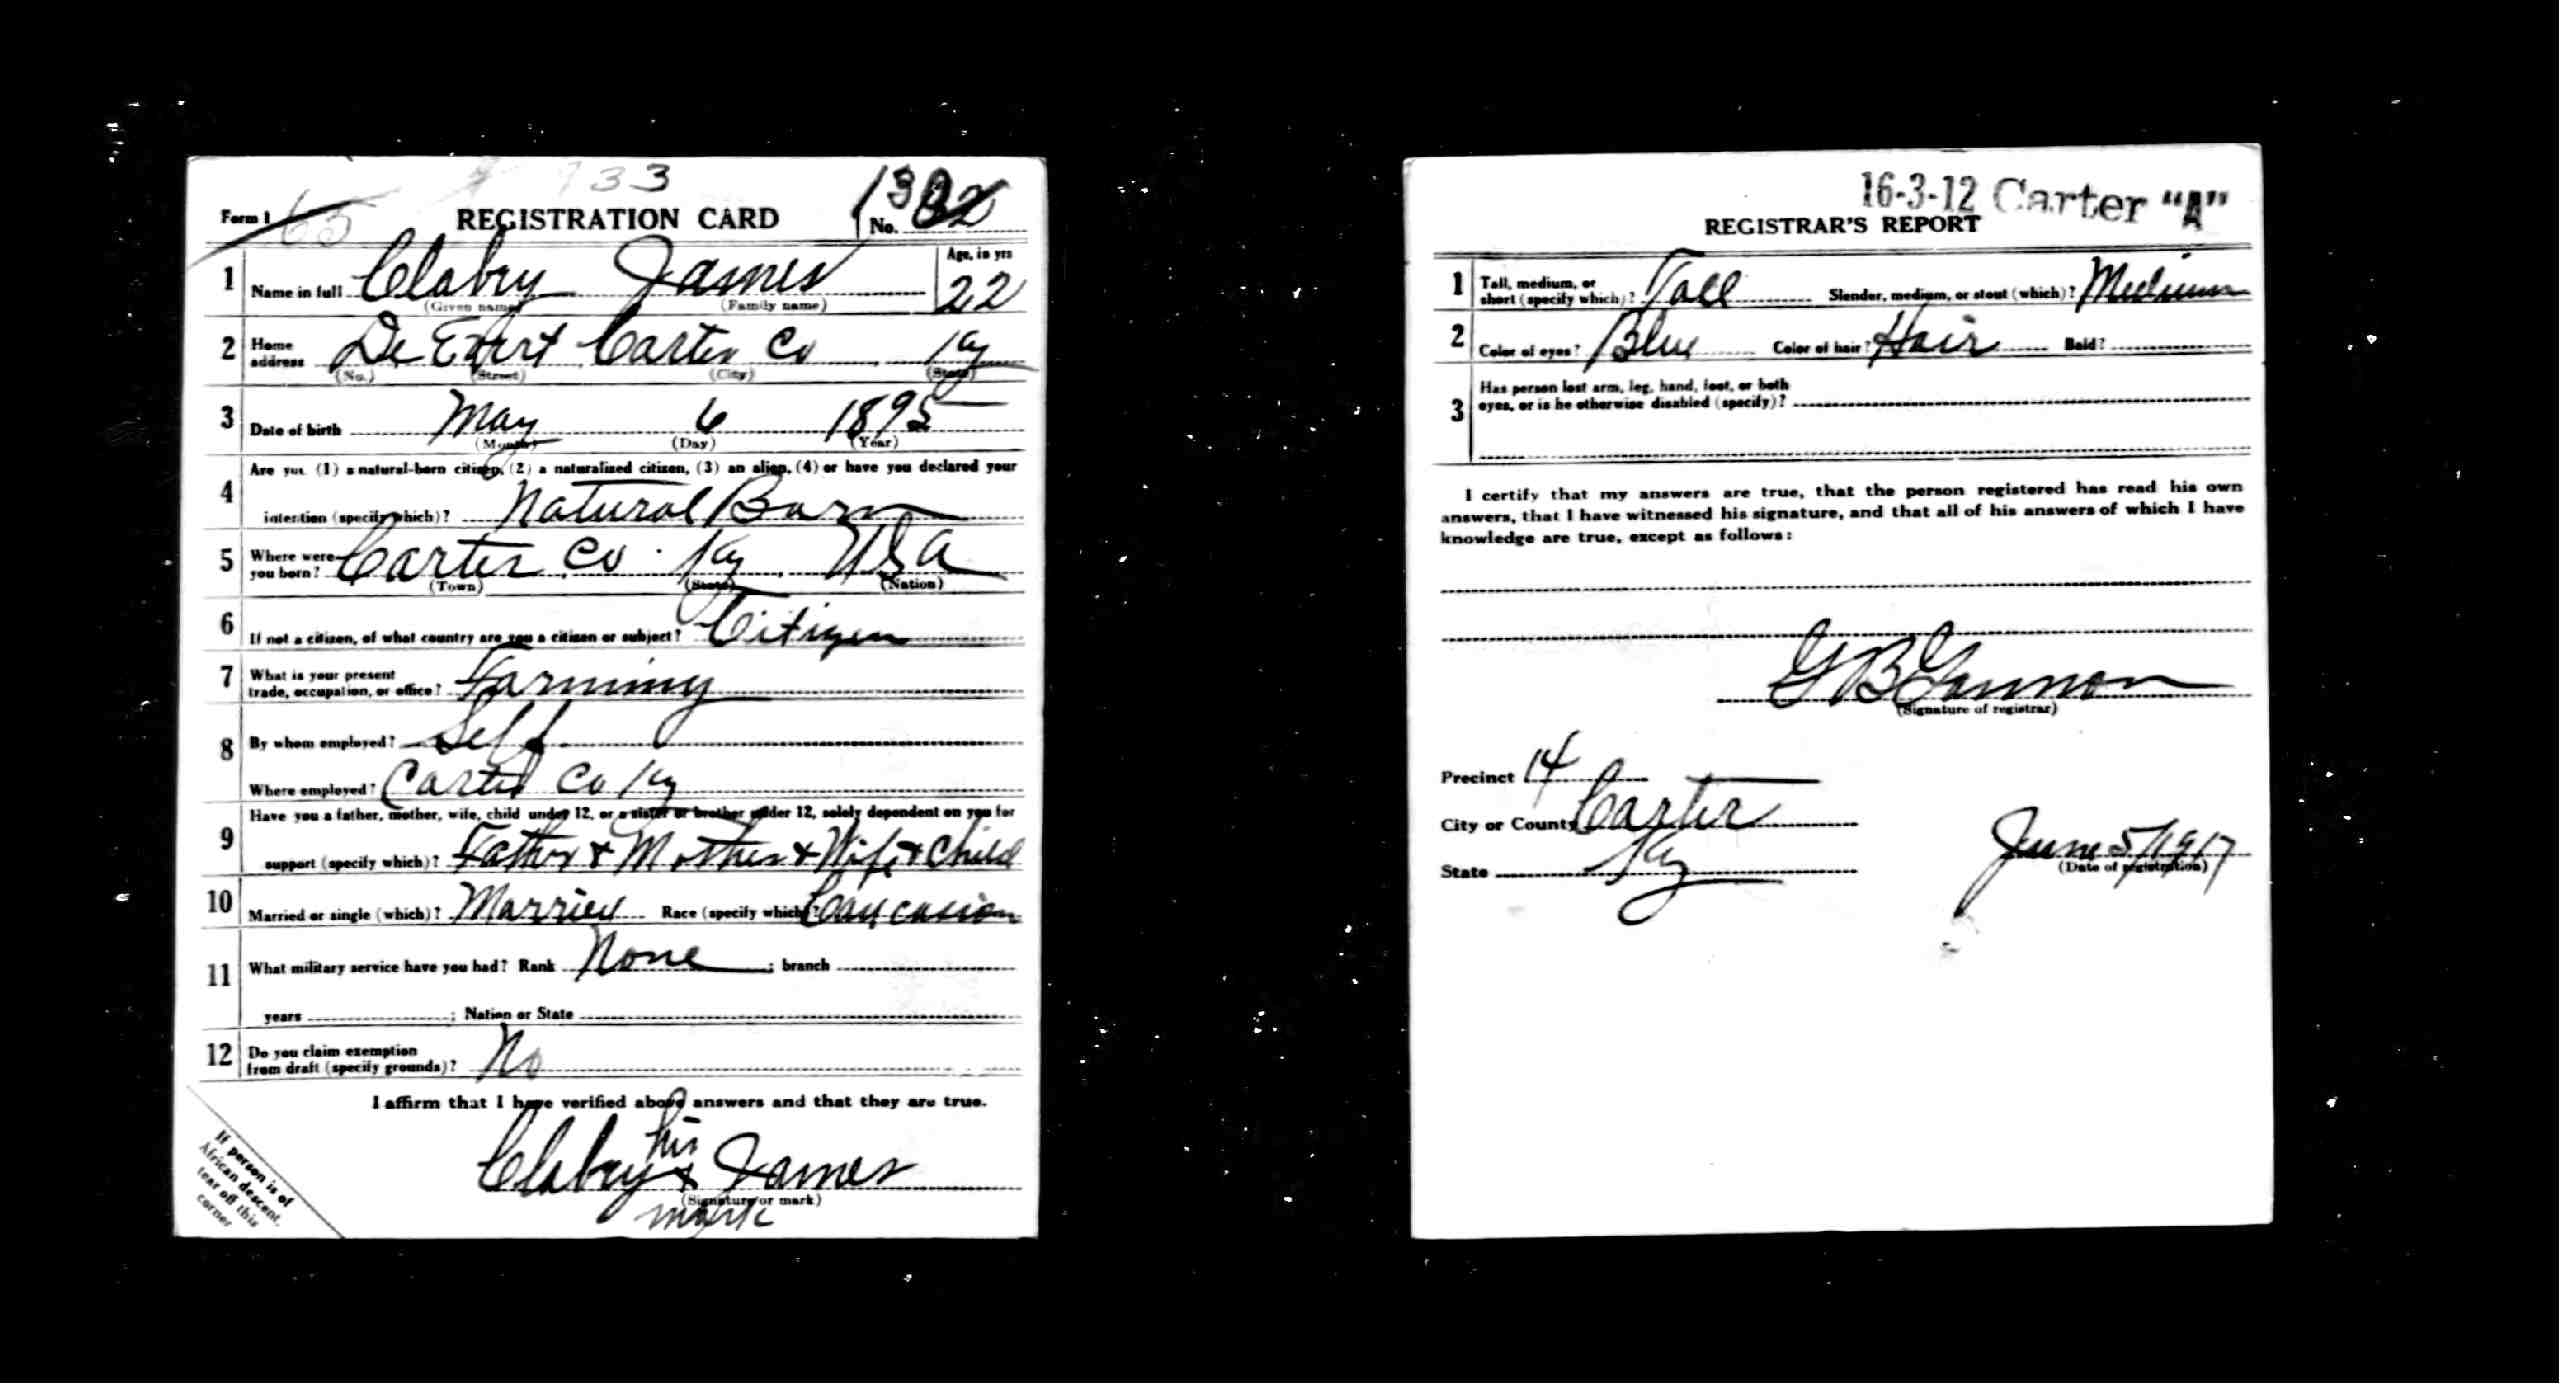 33
Form 1 65 REGISTRATION CARD No.
1 Name in full Clabry James Age, in yrs 22
(Given name) (Family name)
2 Home address De Evert Carter Co Ky
(No.) (Street) (City) (State)
3 Date of birth May 6 1895
(Month) (Day) (Year)
4 Are you (1) a natural-born citizen, (2) a naturalized citizen, (3) an alien, (4) or have you declared your
intention (specify which)? Natural Born
5 Where were you born? Carter Co. Ky USA
(Town) (State) (Nation)
6 If not a citizen, of what country are you a citizen or subject? Citizen
7 What is your present trade, occupation, or office? Farming
8 By whom employed? Self
Where employed? Carter Co Ky
9 Have you a father, mother, wife, child under 12, or a sister or brother under 12, solely dependent on you for
support (specify which)? Father & Mother & Wife & Child
10 Married or single (which)? Married Race (specify which)? Caucasion
11 What military service have you had? Rank None ; branch
years ; Nation or State
12 Do you claim exemption from draft (specify grounds)? No
I affirm that I have verified above answers and that they are true.
his
Clabry x James
(Signature or mark)
mark
If person is of
African descent,
tear off this
corner
16-3-12 Carter "A"
REGISTRAR'S REPORT
1 Tall, medium, or short (specify which)? Tall Slender, medium, or stout (which)? Medium
2 Color of eyes? Blue Color of hair? Hair Bald?
3 Has person lost arm, leg, hand, foot, or both
eyes, or is he otherwise disabled (specify)?
I certify that my answers are true, that the person registered has read his own
answers, that I have witnessed his signature, and that all of his answers of which I have
knowledge are true, except as follows:
G B Gannon
(Signature of registrar)
Precinct 14
City or County Carter
State Ky
June 5/1917
(Date of registration)